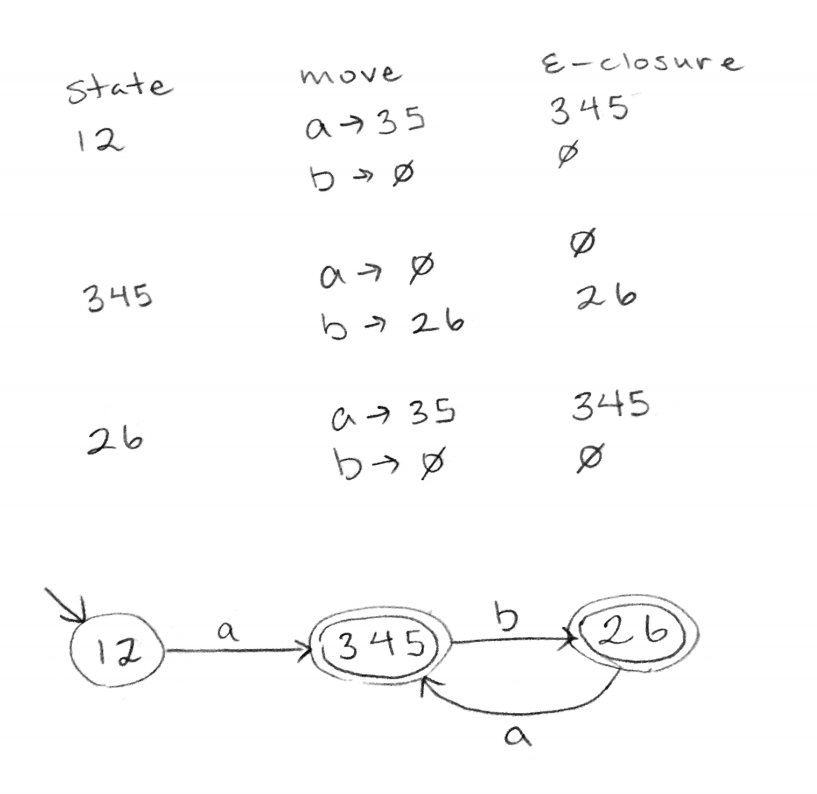 state move ε-closure
12 a → 35 345
b → ∅ ∅
345 a → ∅ ∅
b → 26 26
26 a → 35 345
b → ∅ ∅
12 a 345 b 26
a